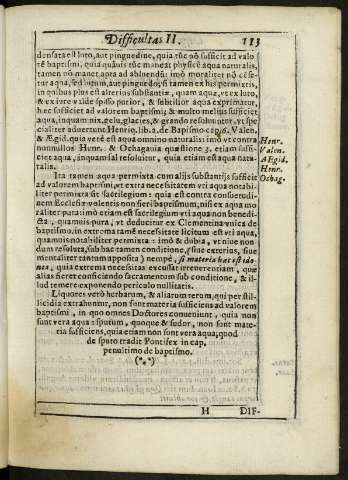 Difficultas II. 113
densata est luto, aut pinguedine, quia tũc nō sufficit ad valo
rē baptismi, quia quãuis tũc maneat physicè aqua naturalis,
tamen nō manet apta ad abluendũ: imò moraliter nō cēse
tur aqua, sed lutum, aut pinguedo; si tamen ex his permixtis,
in quibus plus est alterius substantiæ, quam aquæ, vt ex luto,
& ex iure valde spisso purior, & subtilior aqua exprimatur,
hæc sufficiet ad valorem baptismi; & multo melius sufficiet
aqua, in quam nix, gelu, glacies, & grando resoluitur, vt
cialiter aduertunt Henriq. lib. 2. de Bapismo cap. 6. Valen.
& Ægid. quia verè est aqua omnino naturalis: imò vt contra
nonnullos Henr. & Ochagauia quæstione 3. etiam suffi-
ciet aqua, in quam sal resoluitur, quia etiam est aqua natu-
ralis.
Henr.
Valen.
AEgid.
Henr.
Ochag.
Ita tamen aqua permixta cum alijs substantijs sufficit
ad valorem baptismi, vt extra necessitatem vti aqua notabi-
liter permixta sit sacrilegium: quia est contra consuetudi-
nem Ecclesiæ volentis non fieri baptismum, nisi ex aqua mo
raliter pura: imò etiam est sacrilegium vti aqua non benedi
cta, quamuis pura, vt deducitur ex Clementina vnica de
baptismo, in extrema tamē necessitate licitum est vti aqua,
quamuis notabiliter permixta: imò & dubia, vt niue non
dum resoluta, sub hac tamen conditione, (siue exterius, siue
mentaliter tantum apposita) nempè, si materia hæc est ido-
nea, quia extrema necessitas excusat irreuerentiam, quæ
alias fieret conficiendo sacramentum sub conditione, & il-
lud temerè exponendo periculo nullitatis.
Liquores verò herbarum, & aliarum rerum, qui per stil-
licidia extrahuntur, non sunt materia sufficiens ad valorem
baptismi, in quo omnes Doctores conueniunt, quia non
sunt vera aqua: sputum, quoque & sudor, non sunt mate-
ria sufficiens, quia etiam non sunt vera aqua, quod
de sputo tradit Pontifex in cap.
penultimo de baptismo.
(*⁎*)
H DIF-